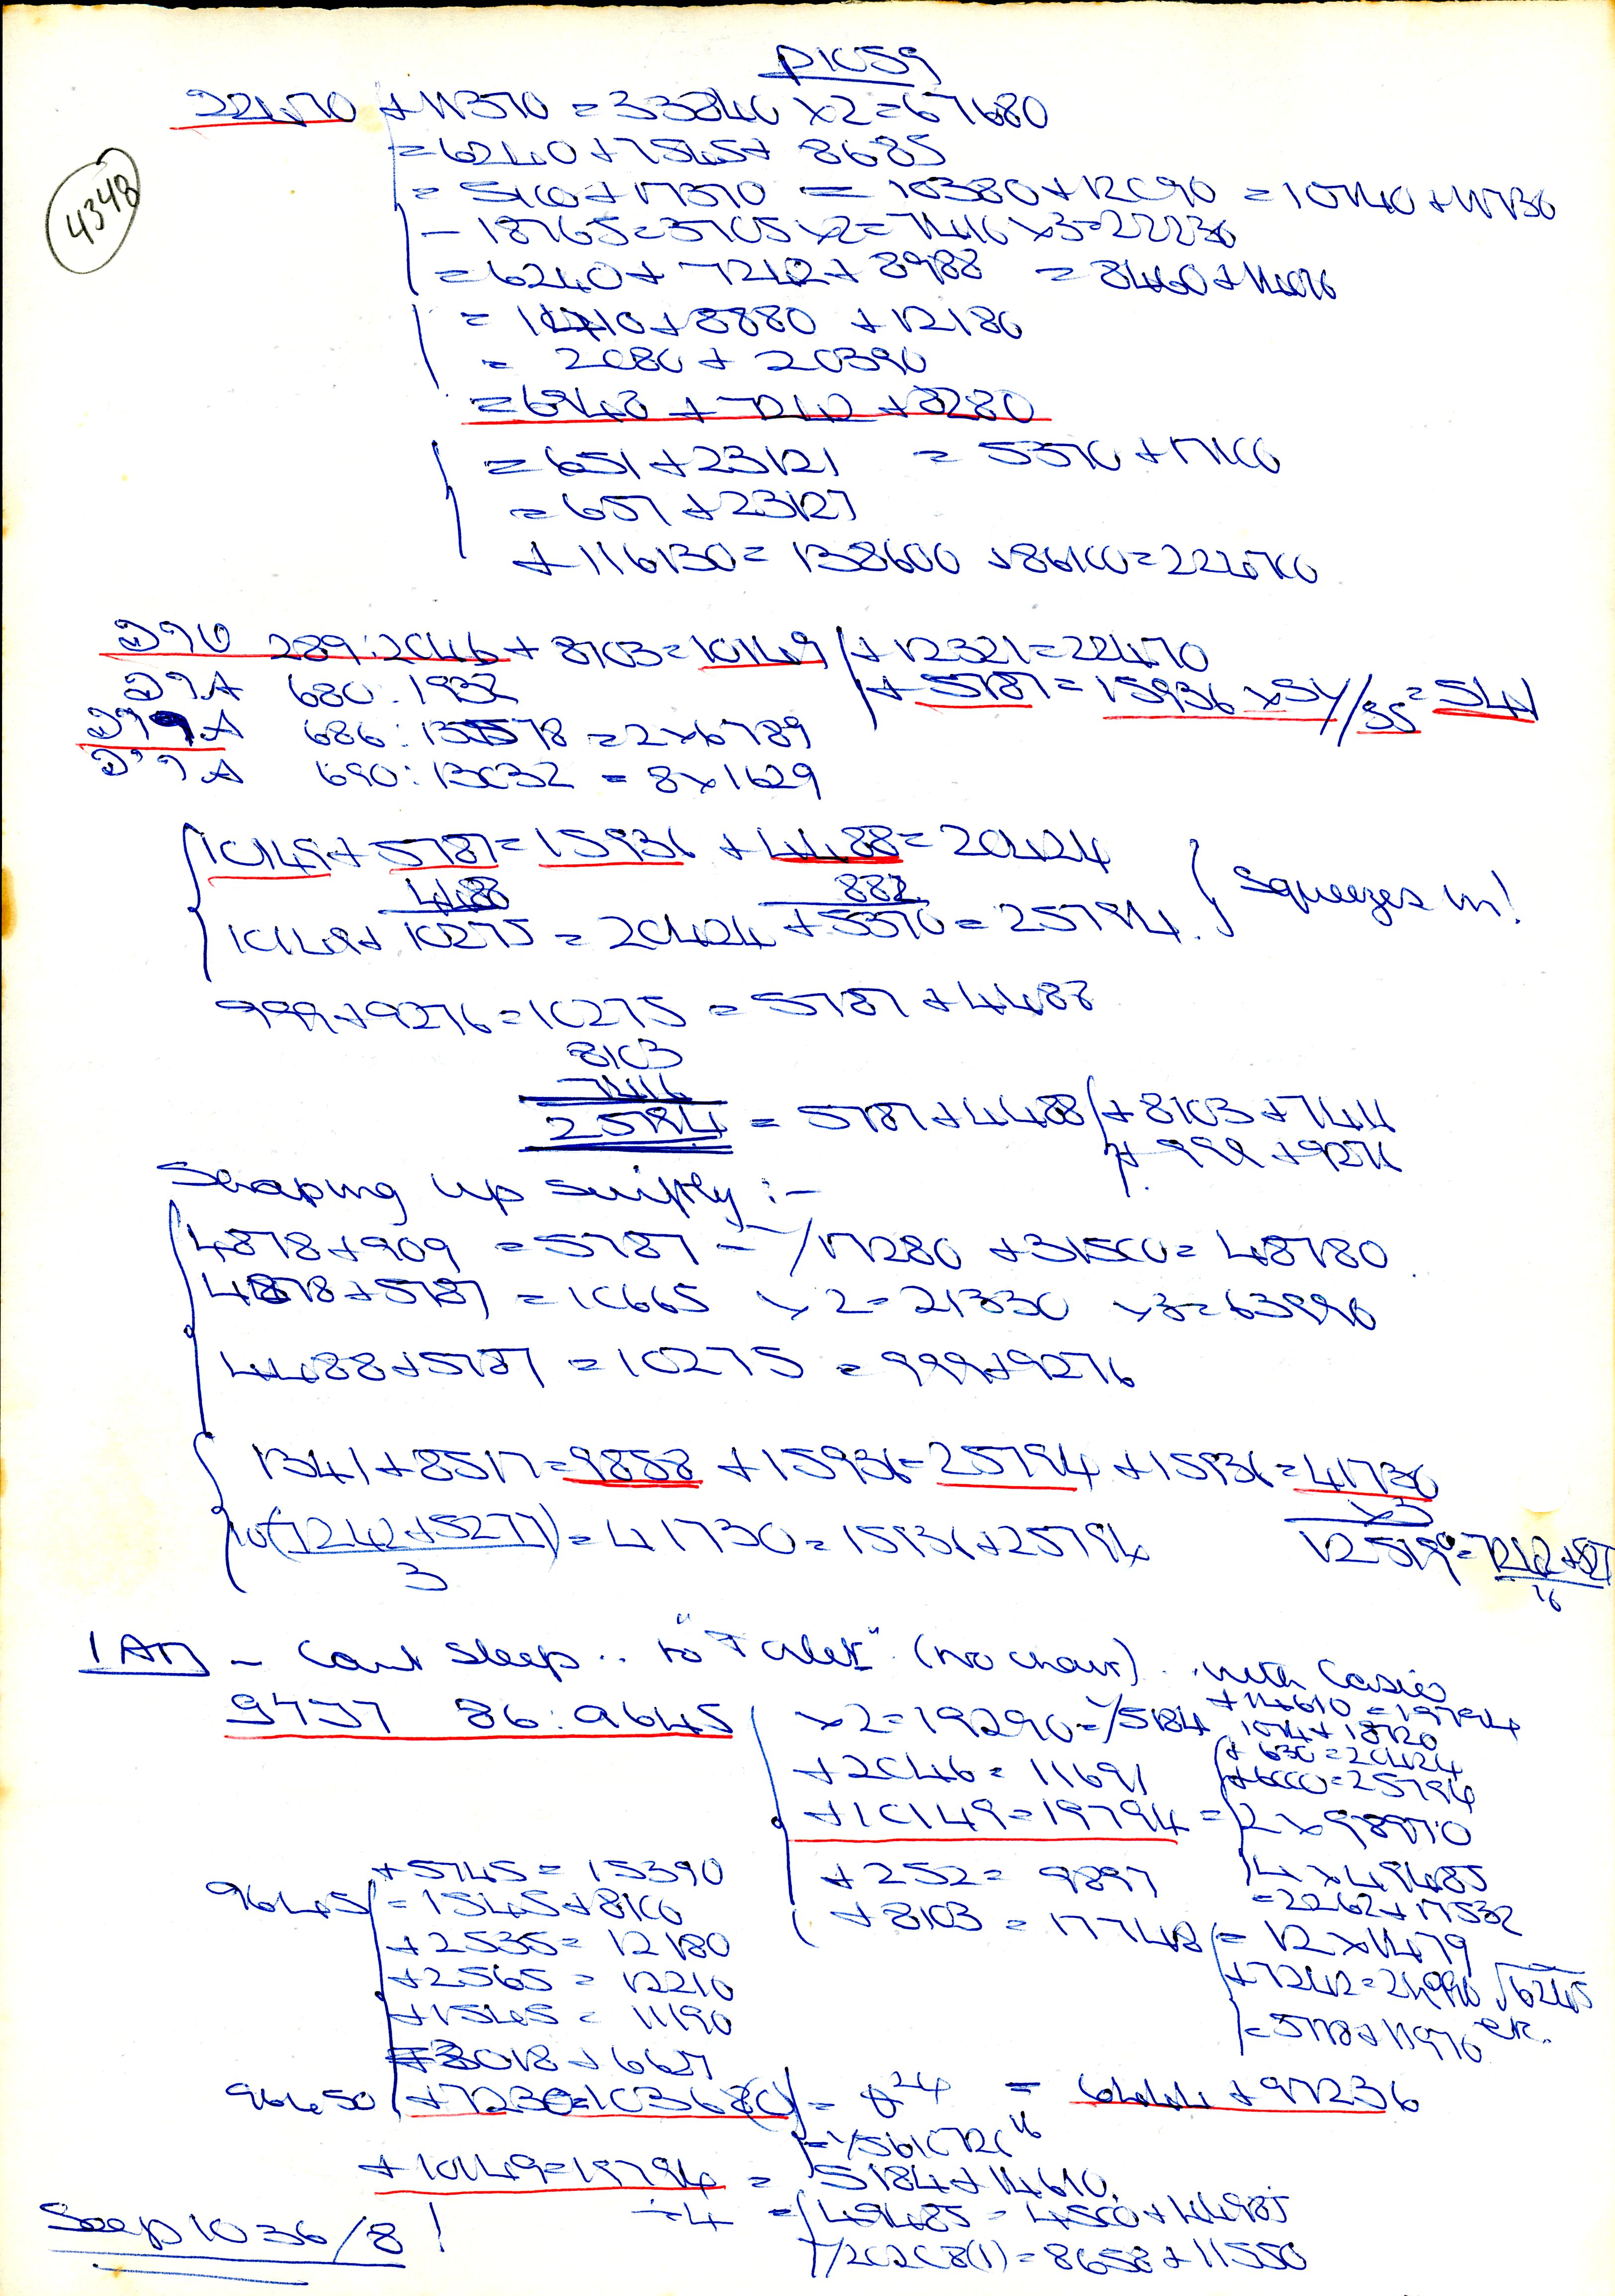 p1059
4348
22470 + 11370 = 33840 x2 = 67680
= 6240 + 7545 + 8685
= 5100 + 17370 = 10380 + 12090 = 10740 + 11730
- 18765 = 3705 x2 = 7410 x3 = 22230
= 6240 + 7242 + 8988 = 8460 + 14010
= 1410 + 8880 + 12180
= 2080 + 20390
= 6948 + 7242 + 8280
= 651 + 23121 = 5370 + 17100
= 657 + 23127
+ 116130 = 138600 + 86100 = 224700
289:2046 + 8103 = 10149 + 12321 = 22470
680:1932 + 5787 = 15936 x34/35 = 541
686:13578 = 2x6789
690:13032 = 8x1629
10149 + 5787 = 15936 + 4488 = 20424
4488 882
10149 + 10275 = 20424 + 5370 = 25794
Squeezes in!
999 + 9276 = 10275 = 5787 + 4488
8103
7416
25794 = 5787 + 4488 + 8103 + 7416
+ 999 + 9276
Shaping up swiftly :-
4878 + 909 = 5787 - /17280 + 31500 = 48780
4878 + 5787 = 10665 x2 = 21330 x3 = 63990
4488 + 5787 = 10275 = 999 + 9276
1341 + 8517 = 9858 + 15936 = 25794 + 15936 = 41730
x3
10(7242 + 5277) = 41730 = 15936 + 25794
3
12519 = 7242 + 527
1 AM - Can't sleep .. to (no chair) .. with Casio
86:9645 x2 = 19290 = /5184 + 14610 = 19794
1074 + 18720
+ 2046 = 11691 + 630 = 20424
+ 6000 = 25794
+ 10149 = 19794 = 2 x 98970
+ 252 = 9897 4 x 49485
= 2262 + 17532
+ 8103 = 17748 = 12 x 1479
+ 7242 = 24990 √6245
= 5778 + 11970 etc.
9645 + 5745 = 15390
= 1545 + 8100
+ 2535 = 12180
+ 2565 = 12210
+ 1545 = 11190
= 3018 + 6627
96450 + 7230 = 10368(0) = = 6444 + 97236
+ 10149 = 19794 = 5184 + 14610
÷ 4 = 49485 = 4500 + 44985
/20208(1) = 8658 + 11550
See p1036/8 !